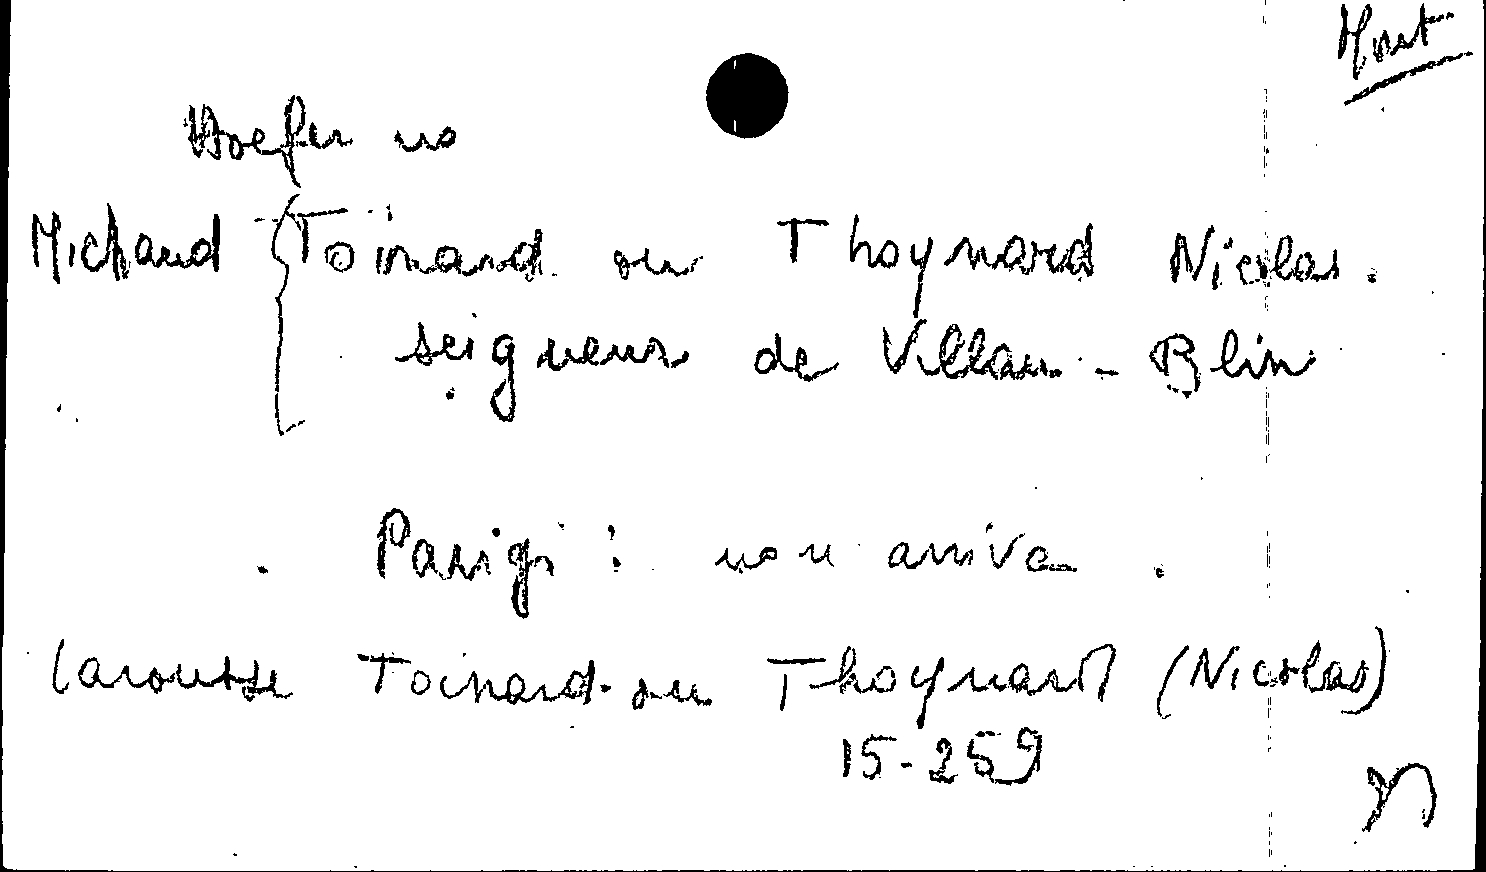 Mont
Hoefer no
Michaud { Toinard ou Thoynard Nicolas.
seigneur de Villan-Blin
Parigi : non arriva .
Larousse Toinard ou Thoynard (Nicolas)
15-259